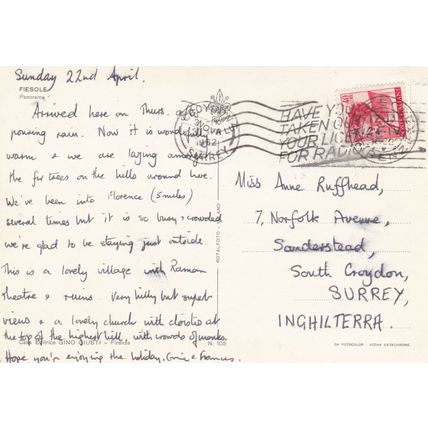 Sunday 22nd April.
FIESOLE
Panorama
Arrived here on Thurs. in
pouring rain. Now it is wonderfully
warm & we are lazing amongst
the fir trees on the hills around here.
We've been into Florence (5 miles)
several times but it is so busy & crowded
we're glad to be staying just outside.
This is a lovely village with Roman
theatre & ruins. Very hilly but superb
views & a lovely church with cloister at
the top of the highest hill, with woods of monks.
Hope you're enjoying the holiday. & Frances.
Casa Editrice GINO GIUSTI - Firenze
N. 105
ROTALFOTO - MILANO
CROYDON
1962
SURREY
HAVE YOU
TAKEN OUT
YOUR LICENCE
FOR RADIO
Miss Anne Ruffhead,
7, Norfolk Avenue,
Sanderstead,
South Croydon,
SURREY,
INGHILTERRA.
DA FOTOCOLOR - KODAK EKTACHROME